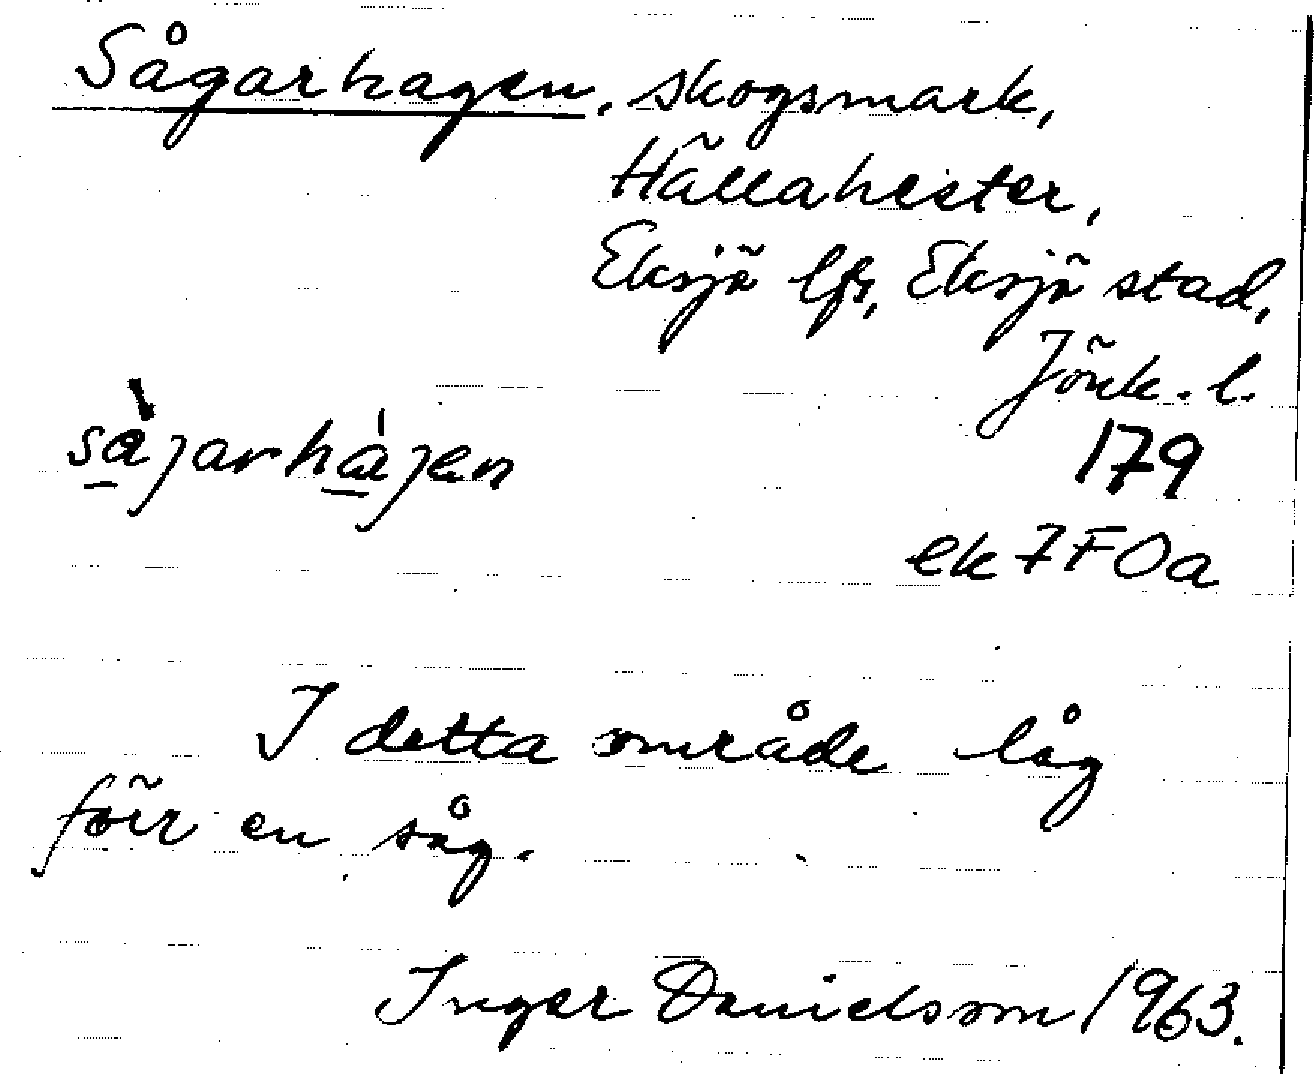 Sågarhagen, skogsmark,
Hällahester,
Eksjö lfs, Eksjö stad,
Jönk. l.
sàjarhájen
179
ek 7F0a
I detta område låg
förr en såg.
Inger Danielsson 1963.